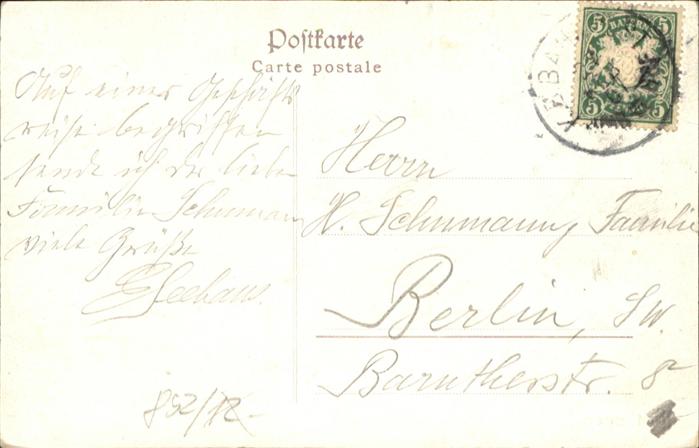 Postkarte
Carte postale
Auf einer Geschäfts
reise begriffen
sende ich der lieben
Familie Schumann
viele Grüße
Seehaus.
Herrn
H. Schumann, Familie
Berlin, SW.
Barutherstr. 8
852/12-
5 BAYERN 5
5 5